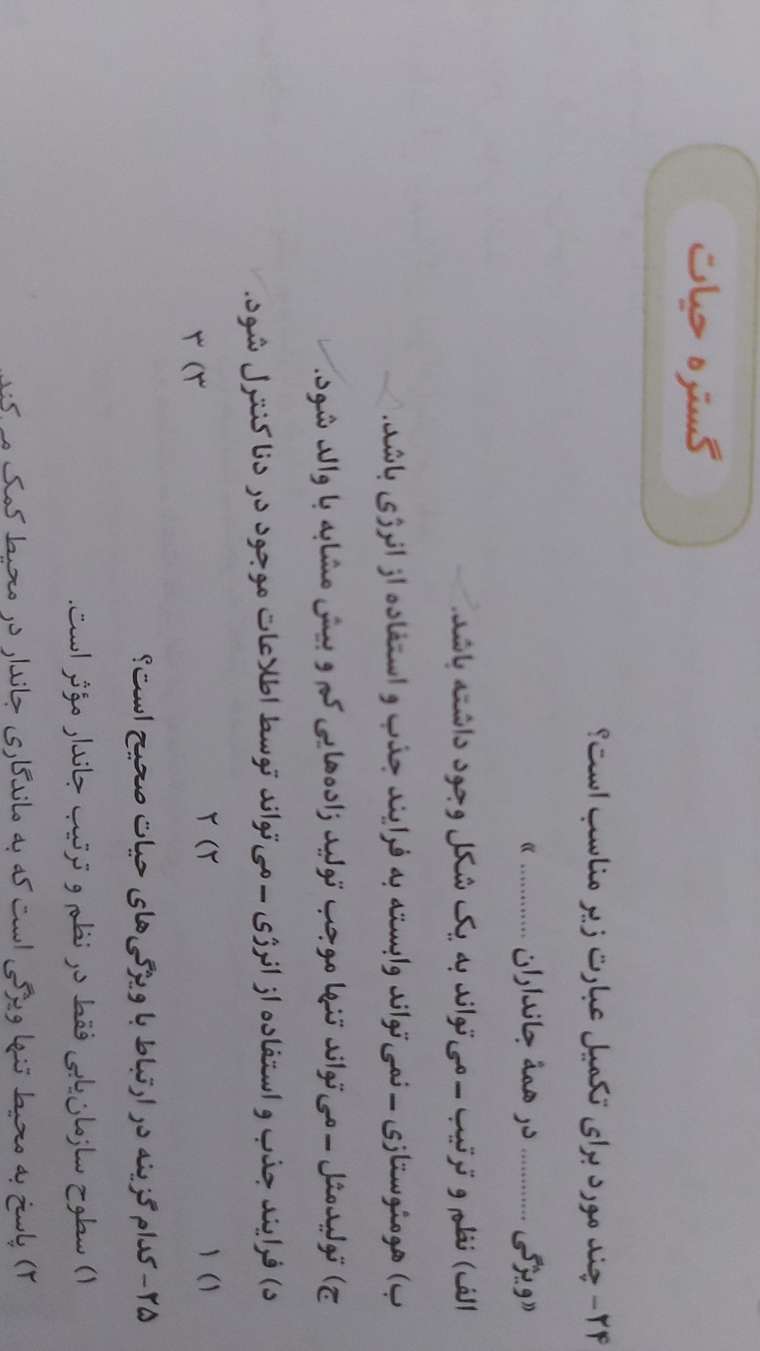 گستره حیات
۲۴- چند مورد برای تکمیل عبارت زیر مناسب است؟
«ویژگی ............ در همهٔ جانداران ............ »
الف) نظم و ترتیب - می‌تواند به یک شکل وجود داشته باشد.
ب) هومئوستازی - نمی‌تواند وابسته به فرایند جذب و استفاده از انرژی باشد.
ج) تولیدمثل - می‌تواند تنها موجب تولید زاده‌هایی کم و بیش مشابه با والد شود.
د) فرایند جذب و استفاده از انرژی - می‌تواند توسط اطلاعات موجود در دنا کنترل شود.
۱) ۱ ۲) ۲ ۳) ۳
۲۵- کدام گزینه در ارتباط با ویژگی‌های حیات صحیح است؟
۱) سطوح سازمان‌یابی فقط در نظم و ترتیب جاندار مؤثر است.
۲) پاسخ به محیط تنها ویژگی است که به ماندگاری جاندار در محیط کمک می‌کند.